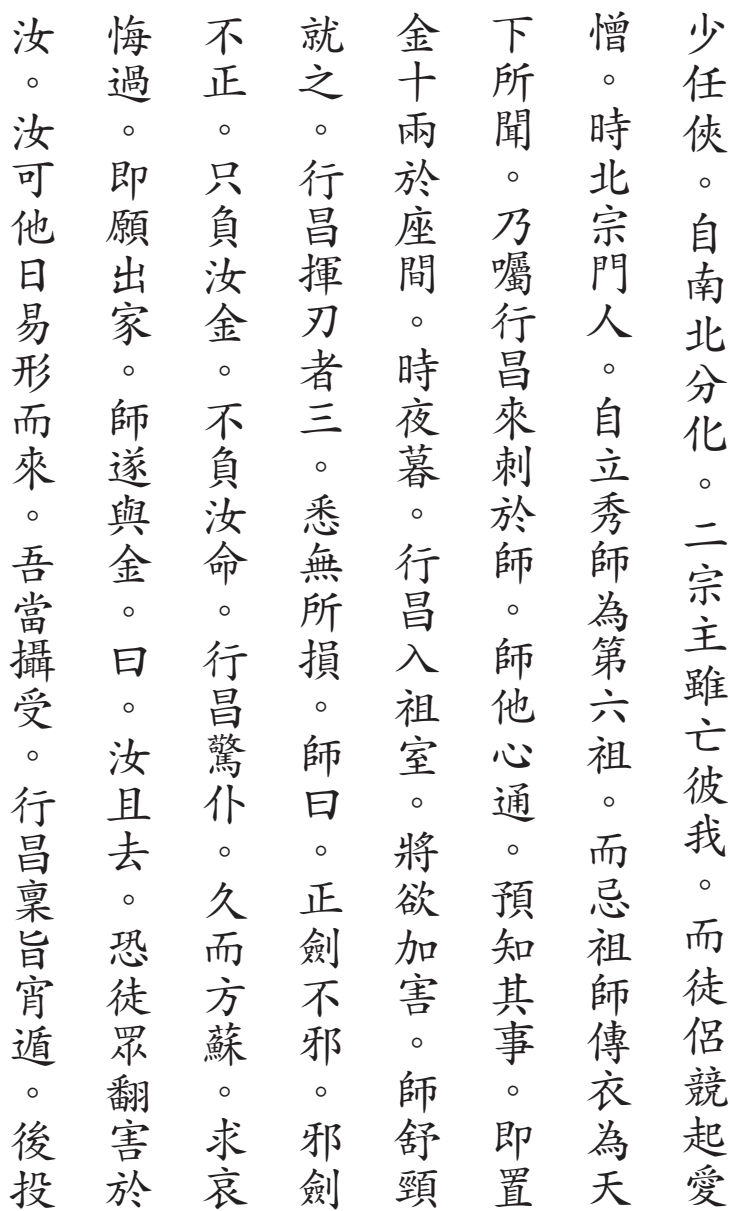 少任俠。自南北分化。二宗主雖亡彼我。而徒侶競起愛
憎。時北宗門人。自立秀師為第六祖。而忌祖師傳衣為天
下所聞。乃囑行昌來刺於師。師他心通。預知其事。即置
金十兩於座間。時夜暮。行昌入祖室。將欲加害。師舒頸
就之。行昌揮刃者三。悉無所損。師曰。正劍不邪。邪劍
不正。只負汝金。不負汝命。行昌驚仆。久而方蘇。求哀
悔過。即願出家。師遂與金。曰。汝且去。恐徒眾翻害於
汝。汝可他日易形而來。吾當攝受。行昌稟旨宵遁。後投